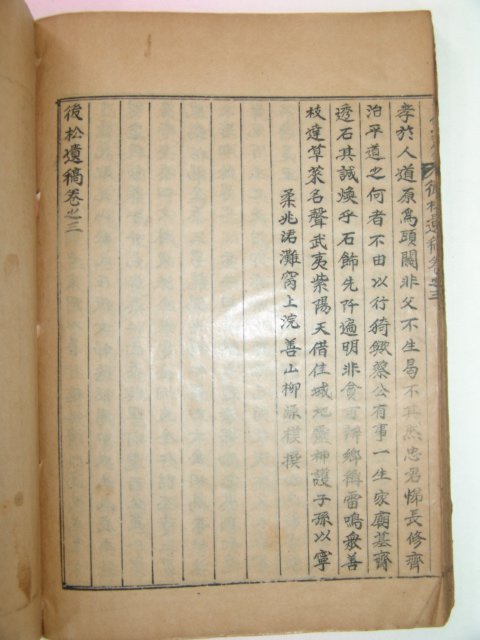 孝於人道原爲頭關非父不生曷不其然忠君悌長修齊
治平道之何者不由以行猗歟蔡公有事一生家廟墓齊
透石其誠煥乎石飾先阡遍明非貪可辨鄉稱雷鳴衆善
枝達草菜名聲武夷紫陽天借佳城地靈神護子孫以寧
柔兆涒灘窝上浣善山柳 模撰
後松遺稿卷之三
後松遺稿卷之三